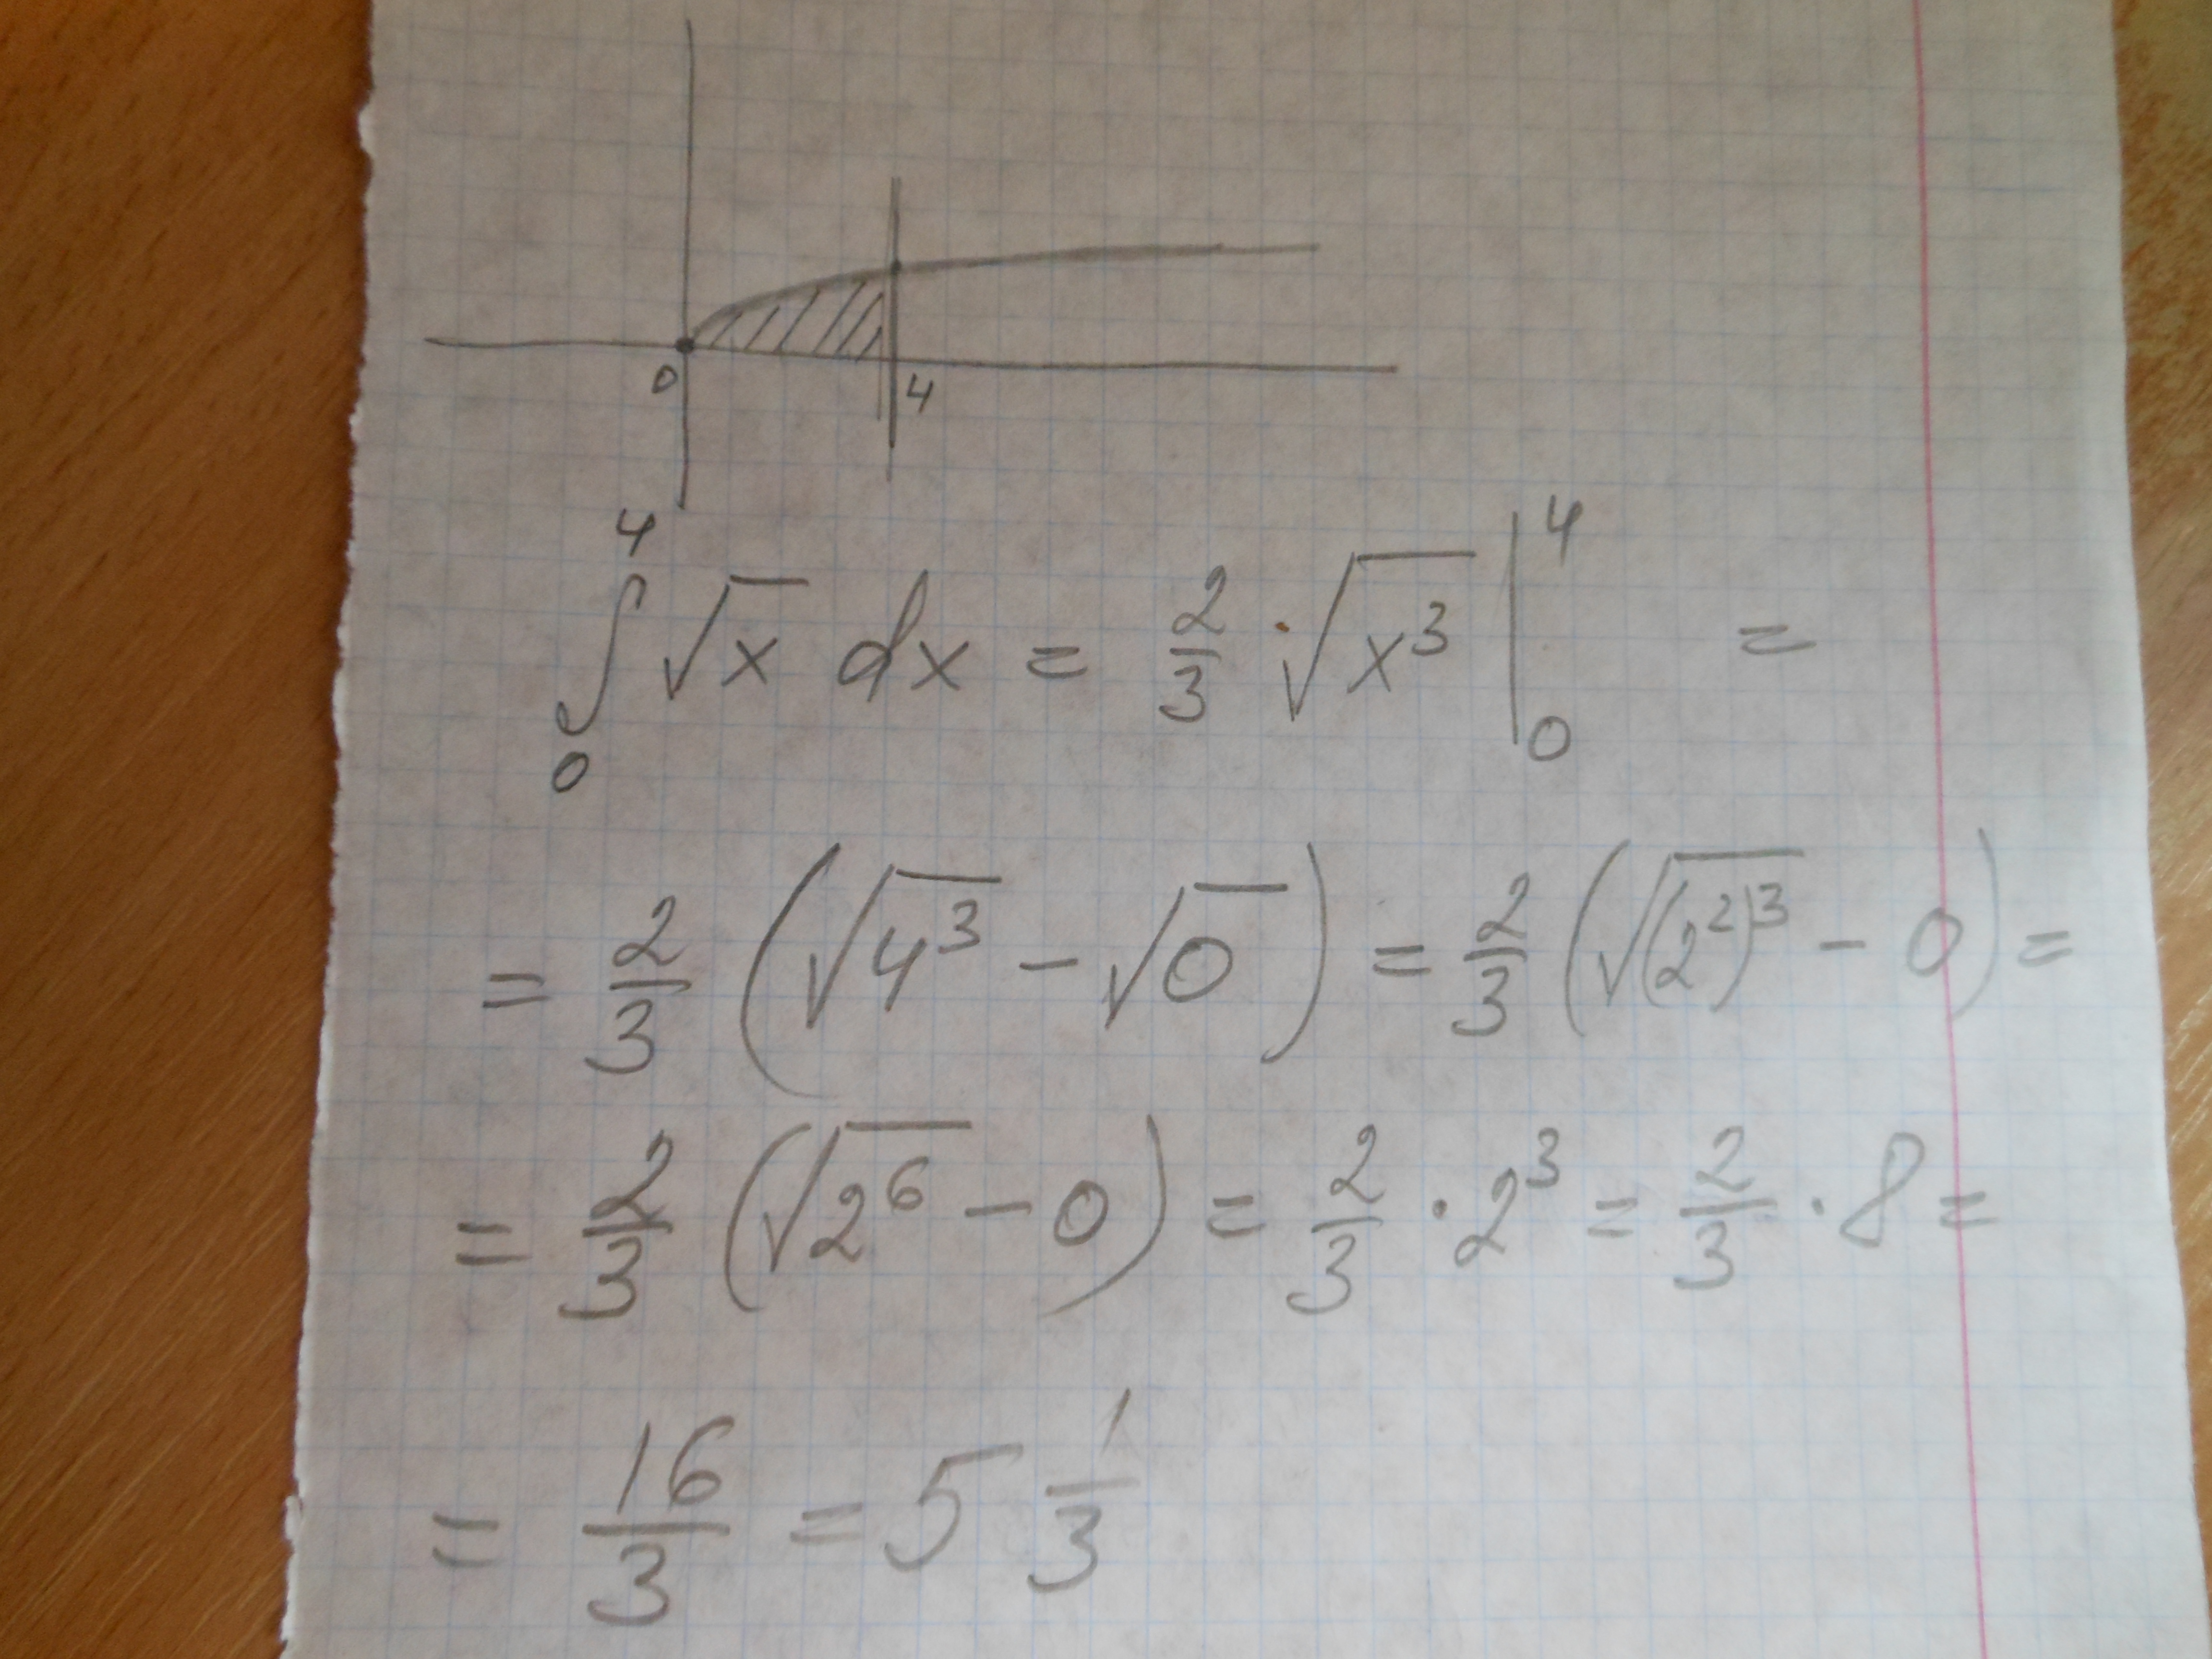 0 4
∫₀⁴ √x dx = 2/3 · √(x³) |₀⁴ =
= 2/3 (√(4³) − √0) = 2/3 (√((2²)³) − 0) =
= 2/3 (√(2⁶) − 0) = 2/3 · 2³ = 2/3 · 8 =
= 16/3 = 5 1/3